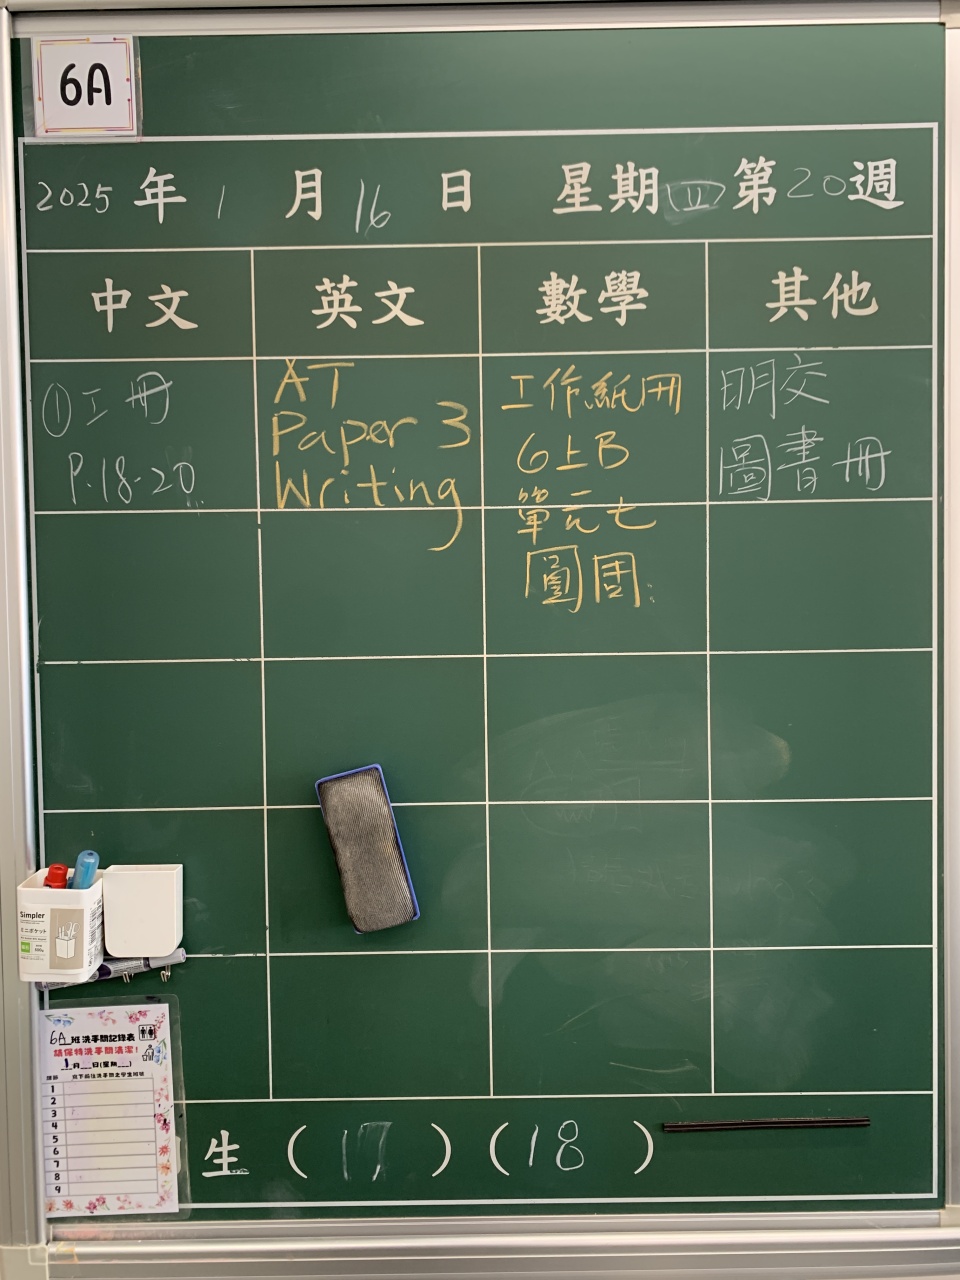 6A
2025年1月16日 星期(四)第20週
中文 英文 數學 其他
①工冊
P.18-20
AT
Paper 3
Writing
工作紙冊
6上B
單元七
圓周
明交
圖書冊
Simpler
ミニポケット
6A班洗手間記錄表
請保持洗手間清潔!
1月__日(星期__)
1
2
3
4
5
6
7
8
9
生 (17) (18)